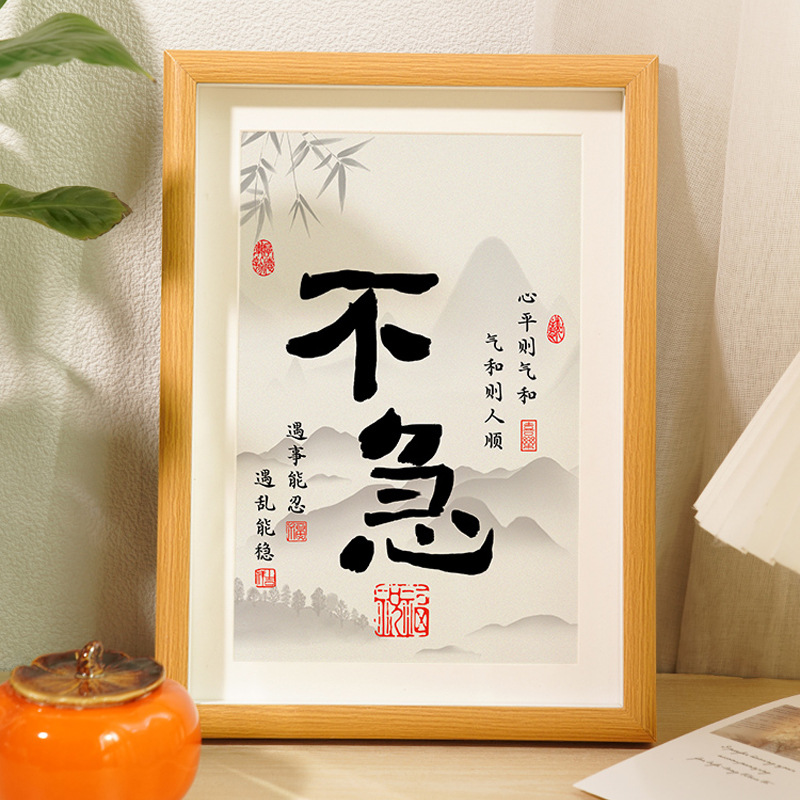 不急
心平则气和
气和则人顺
遇事能忍
遇乱能稳